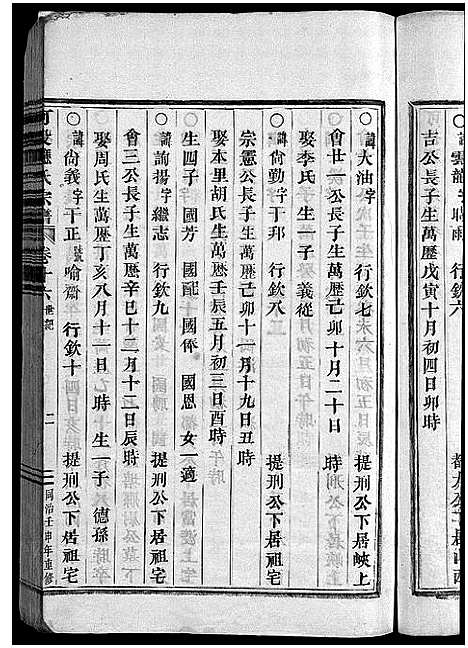 吉公長子生萬歷戊寅十月初四日卯時
○諱大油字 行欽七 提刑公下居峽上
會廿一公長子生萬歷己卯十月二十日 時
娶李氏 生一子 義從
○諱尙勤字于邦 行欽八 提刑公下居祖宅
宗憲公長子生萬歷己卯十一月十九日丑時
娶本里胡氏生萬歷壬辰五月初三日酉時
生四子 國芳 國配 國俸 國恩 女一適
○諱詢揚字繼志 行欽九 提刑公下居祖宅
會三公長子生萬歷辛巳十二月十二日辰時
娶周氏生萬歷丁亥八月十一日 時 生一子 德孫
○諱尙義字于正號喻齋 行欽十 提刑公下居祖宅
應氏宗譜 卷十六 世紀 二 同治壬申年重修